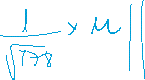 1/√178 × M ||